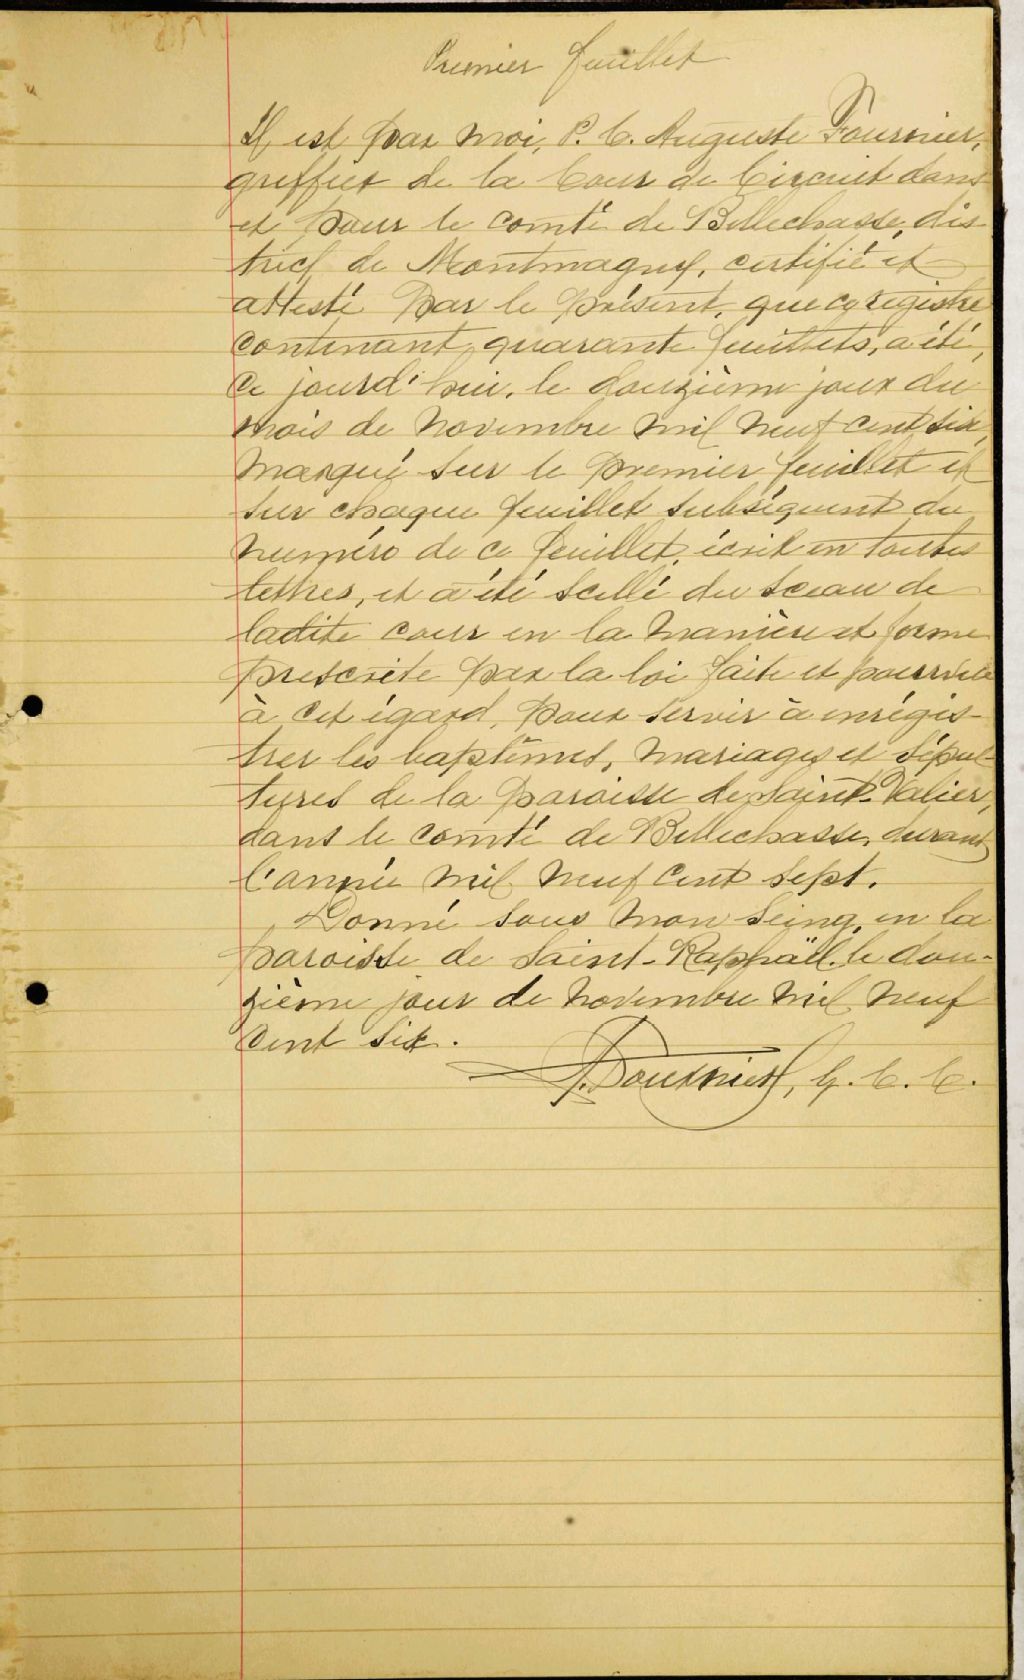 Premier feuillet
Il est par moi, P. C. Auguste Fournier,
greffier de la Cour de Circuit dans
et pour le comté de Bellechasse, dis-
trict de Montmagny, certifié et
attesté par le présent, que ce régistre
contenant quarante feuillets, a été,
ce jourd'hui, le douzième jour du
mois de novembre mil neuf cent six,
marqué sur le premier feuillet et
sur chaque feuillet subséquent du
numéro de ce feuillet, écrit en toutes
lettres, et a été scellé du sceau de
ladite cour en la manière et forme
prescrite par la loi faite et pourvue
à cet égard, pour servir à enrégis-
trer les baptêmes, mariages et sépul-
tures de la paroisse de Saint-Valier,
dans le comté de Bellechasse, durant
l'année mil neuf cent sept.
Donné sous mon seing, en la
paroisse de Saint-Raphaël, le dou-
zième jour de novembre mil neuf
cent six.
A. Fournier, G. C. C.